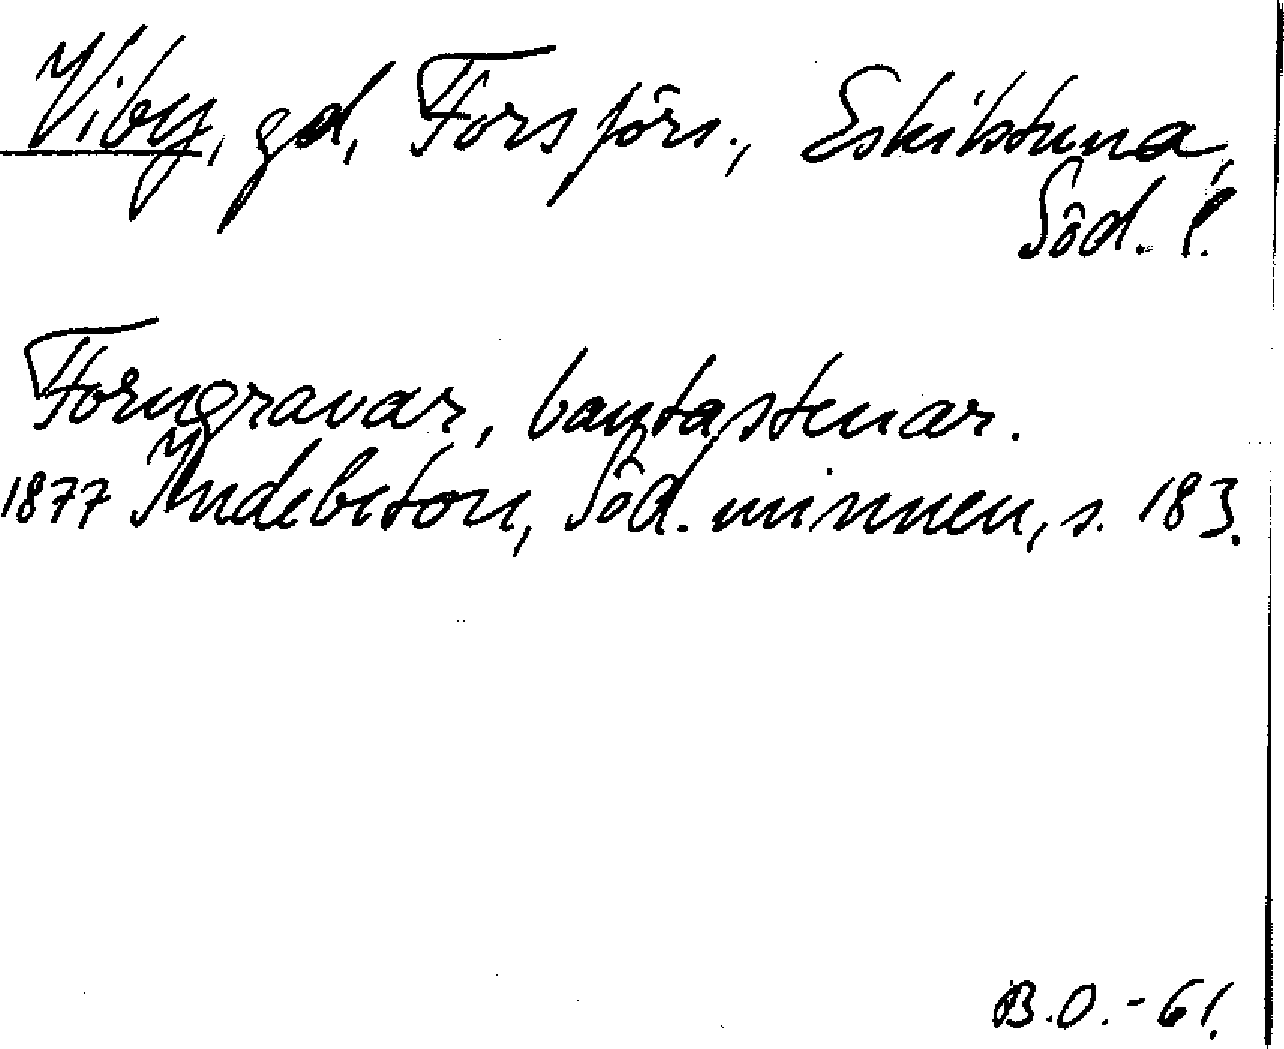 Viby, gd, Fors förs., Eskilstuna,
Söd. l.
Forngravar, bautastenar.
1877 Indebetou, Söd. minnen, s. 183.
B.O.-61.